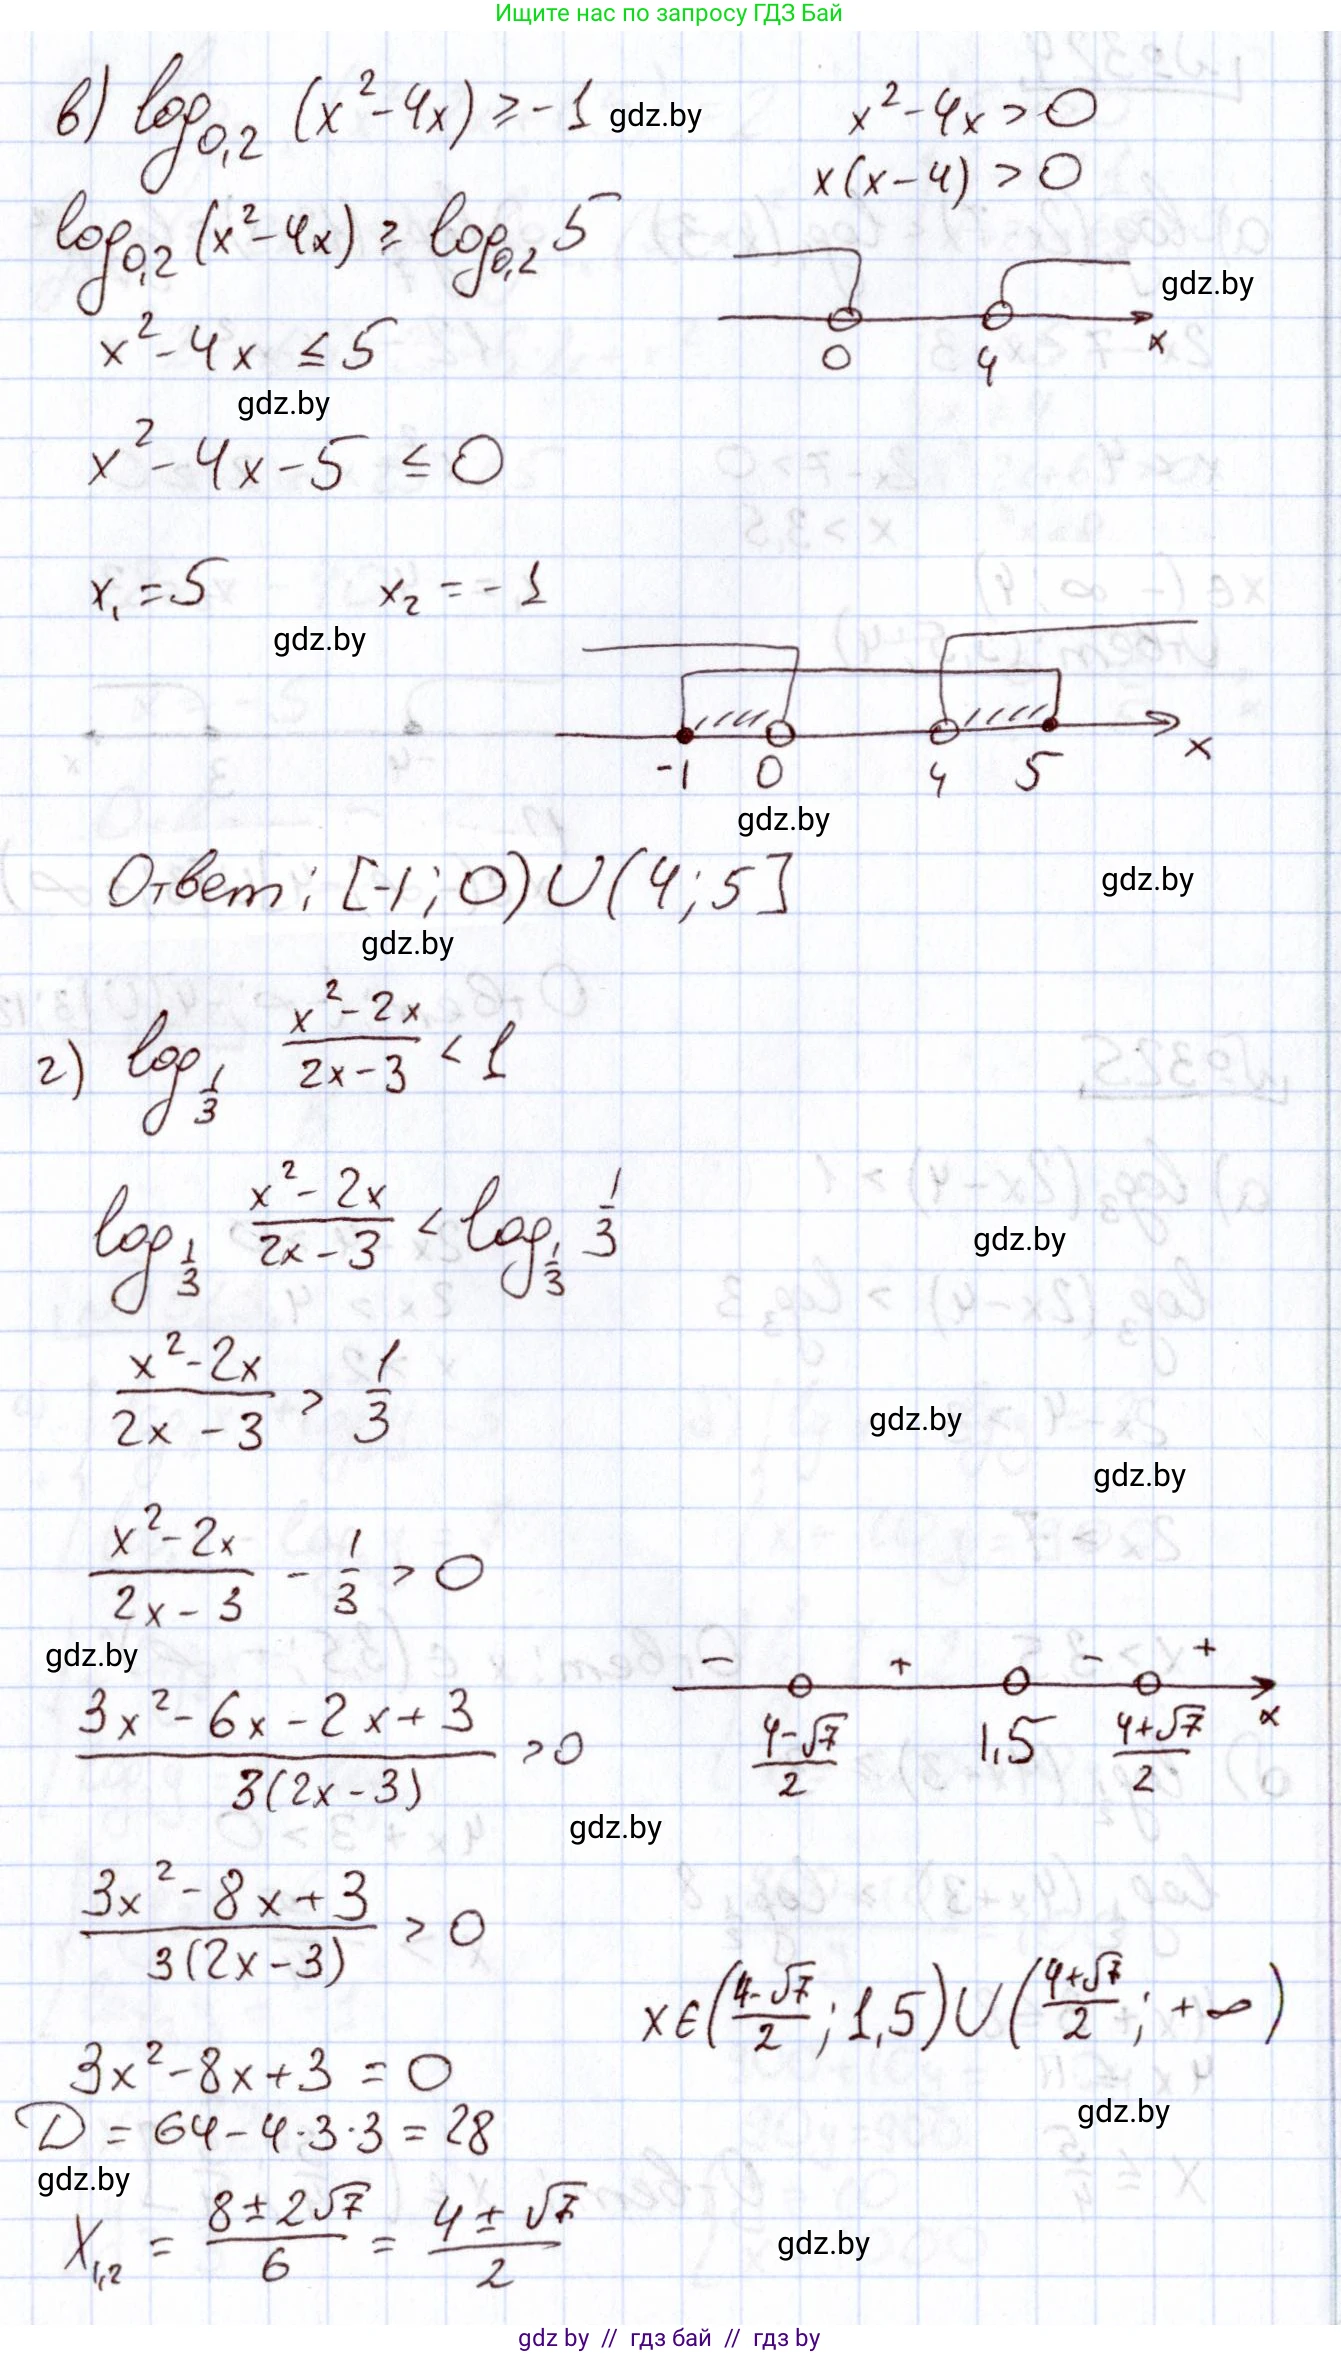 Ищите нас по запросу ГДЗ Бай
в) log_{0,2} (x² - 4x) ≥ -1 gdz.by
x² - 4x > 0
x(x - 4) > 0
log_{0,2} (x² - 4x) ≥ log_{0,2} 5
gdz.by
0 4 x
x² - 4x ≤ 5
gdz.by
x² - 4x - 5 ≤ 0
x₁ = 5 x₂ = -1
gdz.by
-1 0 4 5 x
gdz.by
Ответ: [-1; 0) ∪ (4; 5]
gdz.by
gdz.by
г) log_{1/3} (x² - 2x)/(2x - 3) < 1
log_{1/3} (x² - 2x)/(2x - 3) < log_{1/3} 1/3
gdz.by
(x² - 2x)/(2x - 3) > 1/3
gdz.by
gdz.by
(x² - 2x)/(2x - 3) - 1/3 > 0
gdz.by
(3x² - 6x - 2x + 3)/(3(2x - 3)) > 0
- + - +
(4 - √7)/2 1,5 (4 + √7)/2 x
gdz.by
(3x² - 8x + 3)/(3(2x - 3)) > 0
x ∈ ((4 - √7)/2; 1,5) ∪ ((4 + √7)/2; +∞)
3x² - 8x + 3 = 0
gdz.by
D = 64 - 4·3·3 = 28
gdz.by
X_{1,2} = (8 ± 2√7)/6 = (4 ± √7)/2
gdz.by
gdz by // гдз бай // гдз by